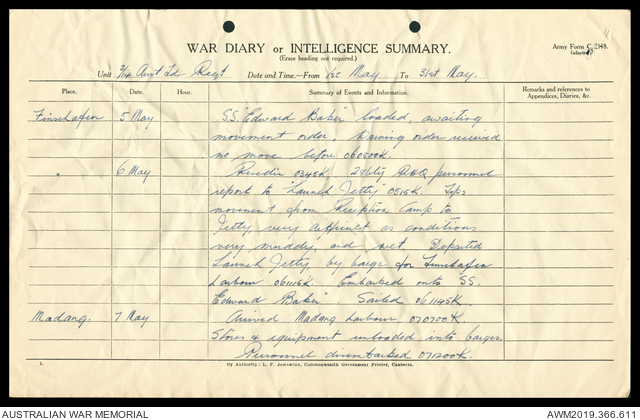 WAR DIARY or INTELLIGENCE SUMMARY.
(Erase heading not required.)
Army Form C. 2118.
Unit 2/14 Aust Fd Regt Date and Time—From 1st May To 31st May.
Place. Date. Hour. Summary of Events and Information. Remarks and references to Appendices, Diaries, &c.
Finschafen 5 May S.S. "Edward Baker" loaded, awaiting
movement order, Warning order received
no move before 060500K.
" 6 May Reveille 0345K, personnel
report to "Launch Jetty" 0515K.
movement from Reception Camp to
Jetty, very difficult as conditions
very muddy, and wet. Departed
Launch Jetty by barge for Finschafen
harbour 061115K. Embarked onto "SS.
Edward Baker". Sailed 061145K.
Madang. 7 May Arrived Madang harbour 070700K.
Stores & equipment unloaded into barges.
Personnel disembarked 071200K.
1. By Authority: L. F. Johnston, Commonwealth Government Printer, Canberra.
AUSTRALIAN WAR MEMORIAL AWM2019.366.611